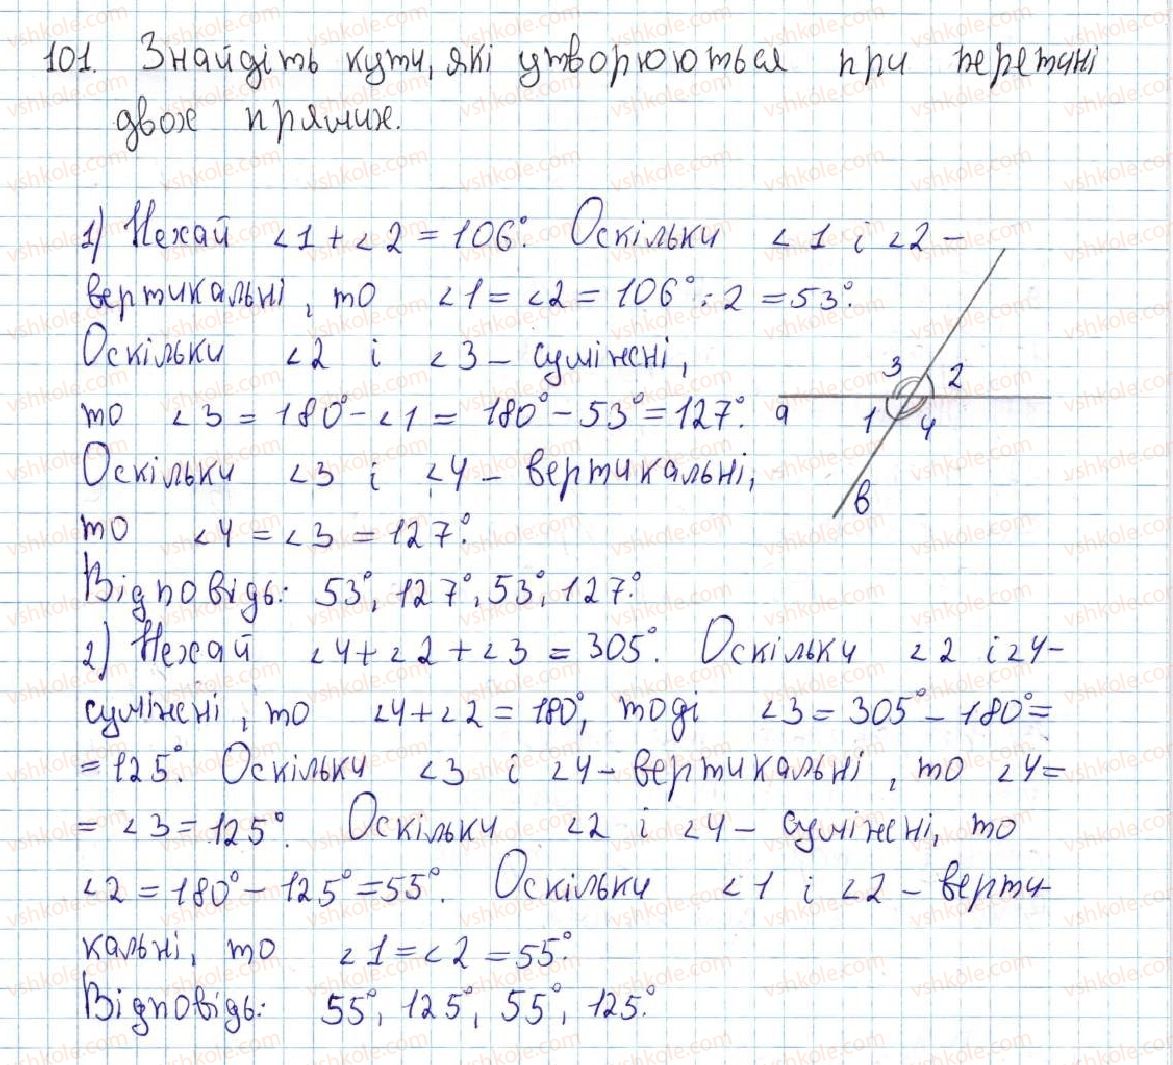 101. Знайдіть кути, які утворюються при перетині
двох прямих.
1) Нехай ∠1 + ∠2 = 106°. Оскільки ∠1 і ∠2 –
вертикальні, то ∠1 = ∠2 = 106° : 2 = 53°.
Оскільки ∠2 і ∠3 – суміжні,
то ∠3 = 180° – ∠1 = 180° – 53° = 127°.
Оскільки ∠3 і ∠4 – вертикальні,
то ∠4 = ∠3 = 127°.
Відповідь: 53°, 127°, 53°, 127°.
3 2
a 1 4
в
2) Нехай ∠4 + ∠2 + ∠3 = 305°. Оскільки ∠2 і ∠4 –
суміжні, то ∠4 + ∠2 = 180°, тоді ∠3 = 305° – 180° =
= 125°. Оскільки ∠3 і ∠4 – вертикальні, то ∠4 =
= ∠3 = 125°. Оскільки ∠2 і ∠4 – суміжні, то
∠2 = 180° – 125° = 55°. Оскільки ∠1 і ∠2 – верти-
кальні, то ∠1 = ∠2 = 55°.
Відповідь: 55°, 125°, 55°, 125°.
vshkole.com